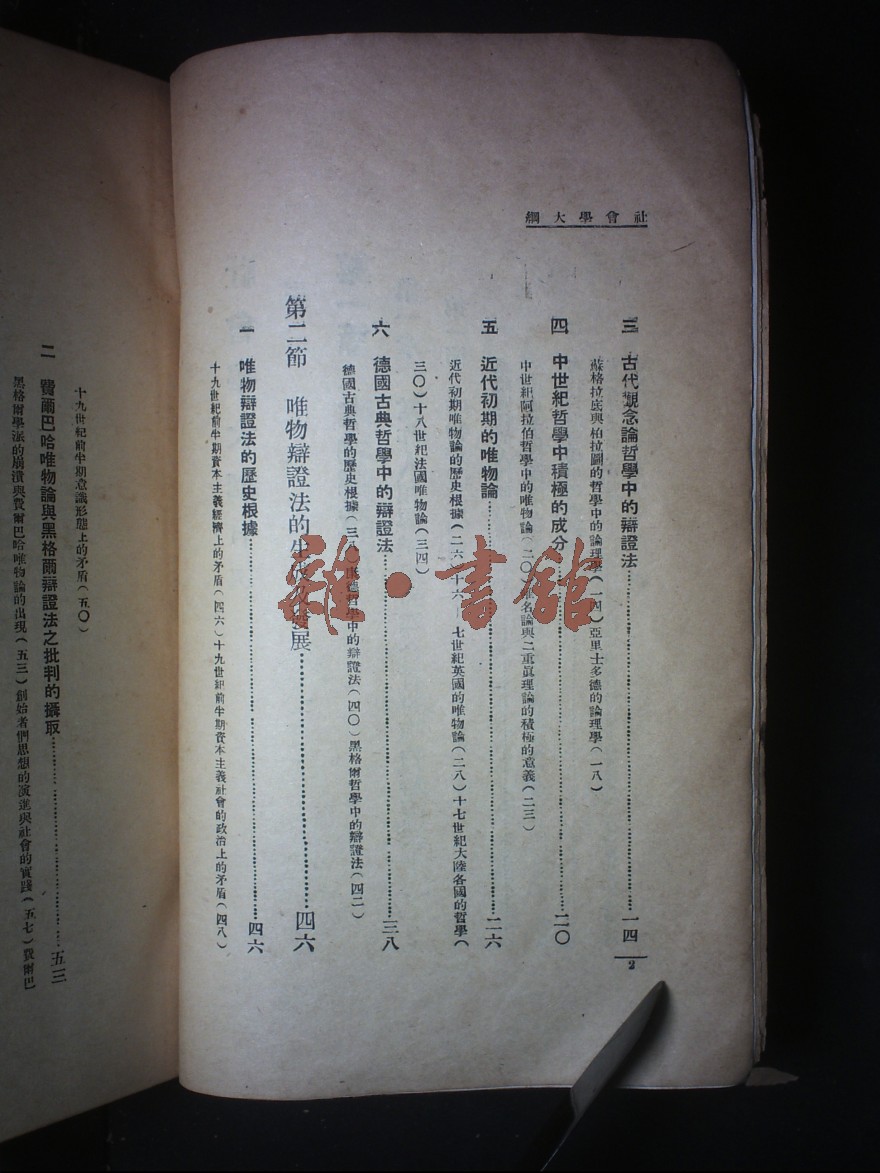 社會學大綱
三 古代觀念論哲學中的辯證法……一四
蘇格拉底與柏拉圖的哲學中的論理學(一四)亞里士多德的論理學(一八)
四 中世紀哲學中積極的成分……二〇
中世紀阿拉伯哲學中的唯物論(二〇)名論與二重眞理論的積極的意義(二三)
五 近代初期的唯物論……二六
近代初期唯物論的歷史根據(二六)十六、七世紀英國的唯物論(二八)十七世紀大陸各國的哲學(
三〇)十八世紀法國唯物論(三四)
六 德國古典哲學中的辯證法……三八
德國古典哲學的歷史根據(三八)哲學中的辯證法(四〇)黑格爾哲學中的辯證法(四二)
第二節 唯物辯證法的生及發展……四六
一 唯物辯證法的歷史根據……四六
十九世紀前半期資本主義經濟上的矛盾(四六)十九世紀前半期資本主義社會的政治上的矛盾(四八)
2
十九世紀前半期意識形態上的矛盾(五〇)
二 費爾巴哈唯物論與黑格爾辯證法之批判的攝取……五三
黑格爾學派的崩潰與費爾巴哈唯物論的出現(五三)創始者們思想的演進與社會的實踐(五七)費爾巴
雜·書館